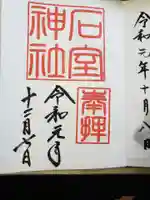 令和元年十月八日
奉拝
石室
神社
令和元年
十二月日